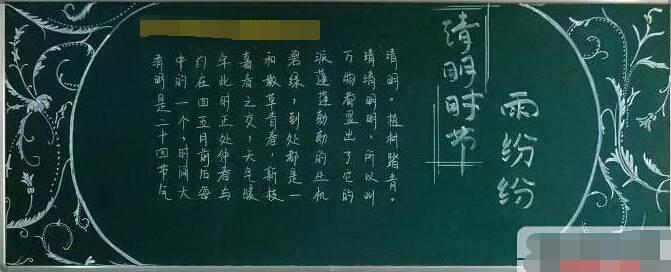 清明时节
雨纷纷
清明是二十四节气
中的一个,时间大
约在四五月前后每
年此时正处仲春与
暮春之交,天气暖
和嫩草青春,新枝
碧绿,到处都是一
派蓬蓬勃勃的生机
万物都显出了它的
清清明明,所以叫
清明。植树踏青。